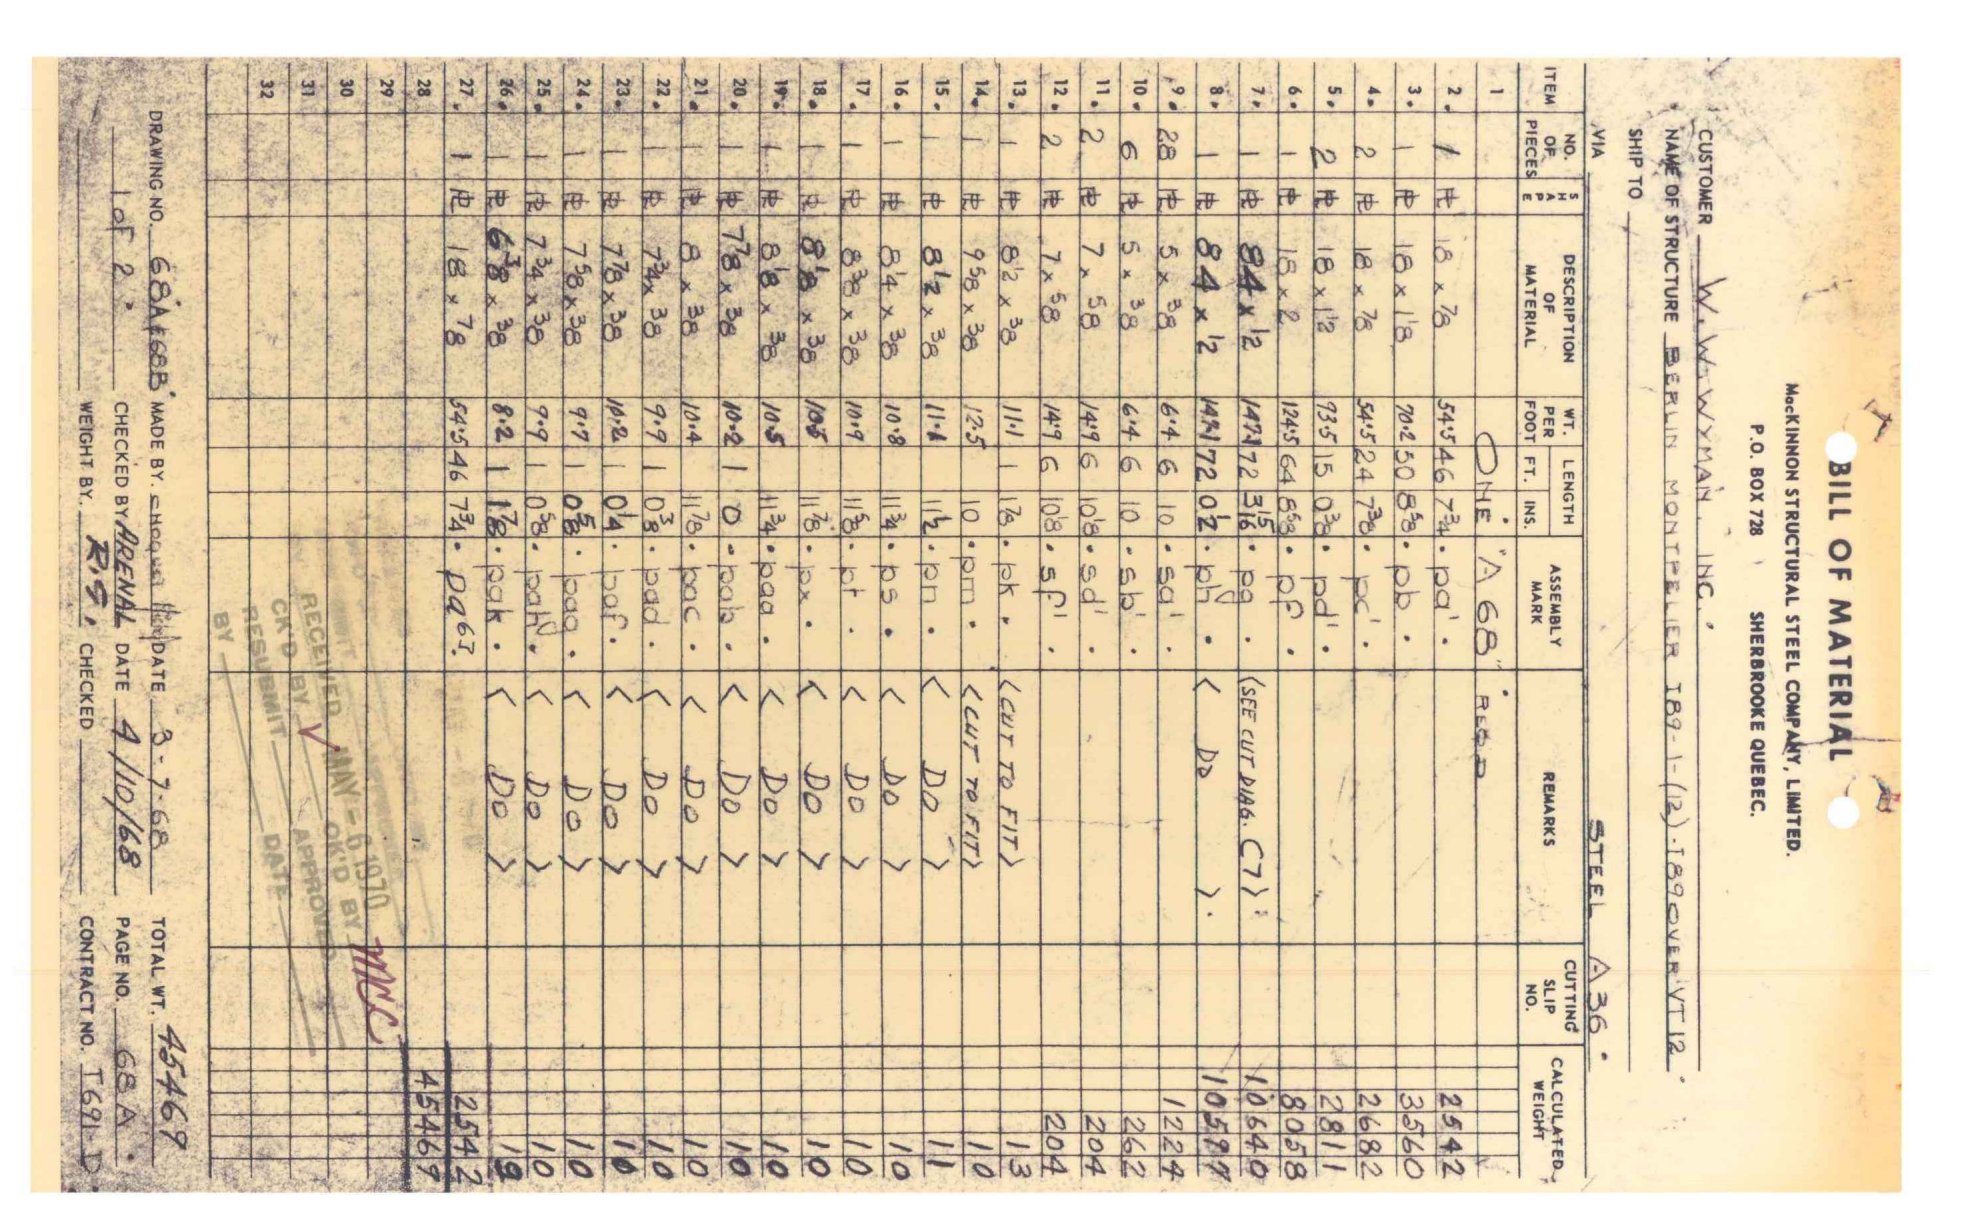 BILL OF MATERIAL
MacKINNON STRUCTURAL STEEL COMPANY, LIMITED.
P.O. BOX 728 SHERBROOKE QUEBEC.
CUSTOMER W. W. WYMAN, INC.
NAME OF STRUCTURE BERLIN MONTPELIER I89-1-(12).I89 OVER VT 12
SHIP TO
VIA STEEL A36.
ITEM NO. OF PIECES SHAPE DESCRIPTION OF MATERIAL WT. PER FOOT LENGTH FT. INS. ASSEMBLY MARK REMARKS CUTTING SLIP NO. CALCULATED WEIGHT
1 ONE "A 68" REQD
2. 1 PL 18 x 7/8 54.5 46 7 3/4 . pa'. 2542
3. 1 PL 18 x 1 1/8 70.2 50 8 5/8 . pb . 3560
4. 2 PL 18 x 7/8 54.5 24 7 3/8 . pc' . 2682
5. 2 PL 18 x 1 1/2 93.5 15 0 3/8 . pd' . 2811
6. 1 PL 18 x 2 124.5 64 8 5/8 . pf . 8058
7. 1 PL 84 x 1/2 147.1 72 3 15/16 . pg . (SEE CUT DIAG. C7). 10640
8. 1 PL 84 x 1/2 147.1 72 0 1/2 . ph . < DO >. 10597
9. 28 PL 5 x 3/8 6.4 6 10 . sa' . 1224
10. 6 PL 5 x 3/8 6.4 6 10 . sb' . 262
11. 2 PL 7 x 5/8 14.9 6 10 1/8 . sd' . 204
12. 2 PL 7 x 5/8 14.9 6 10 1/8 . sf' . 204
13. 1 PL 8 1/2 x 3/8 11.1 1 1 7/8 . pk . <CUT TO FIT> 13
14. 1 PL 9 5/8 x 3/8 12.5 10 . pm . <CUT TO FIT> 10
15. 1 PL 8 1/2 x 3/8 11.1 11 1/2 . pn . < DO > 11
16. 1 PL 8 1/4 x 3/8 10.8 11 3/4 . ps . < DO > 10
17. 1 PL 8 3/8 x 3/8 10.9 11 5/8 . pt . < DO > 10
18. 1 PL 8 1/8 x 3/8 10.5 11 7/8 . px . < DO > 10
19. 1 PL 8 1/8 x 3/8 10.5 11 3/4 . paa . < DO > 10
20. 1 PL 7 7/8 x 3/8 10.2 1 0 . pab . < DO > 10
21. 1 PL 8 x 3/8 10.4 11 7/8 . pac . < DO > 10
22. 1 PL 7 3/4 x 3/8 9.9 1 0 3/8 . pad . < DO > 10
23. 1 PL 7 7/8 x 3/8 10.2 1 0 1/4 . paf . < DO > 10
24. 1 PL 7 5/8 x 3/8 9.7 1 0 5/8 . pag . < DO > 10
25. 1 PL 7 3/4 x 3/8 9.9 1 0 5/8 . pah . < DO > 10
26. 1 PL 6 3/8 x 3/8 8.2 1 1 7/8 . pak . < DO > 19
27. 1 PL 18 x 7/8 54.5 46 7 3/4 . pa65. 2542
28 45469
29
30
31
32
RECEIVED MAY - 6 1970
CK'D BY OK'D BY MWC
RESUBMIT APPROVED
BY DATE
DRAWING NO. 68A & 68B MADE BY. DATE 3-7-68 TOTAL WT. 45469
1 of 2. CHECKED BY ARENAL DATE 4/10/68 PAGE NO. 68 A.
WEIGHT BY. R.S. CHECKED CONTRACT NO. T 691-D